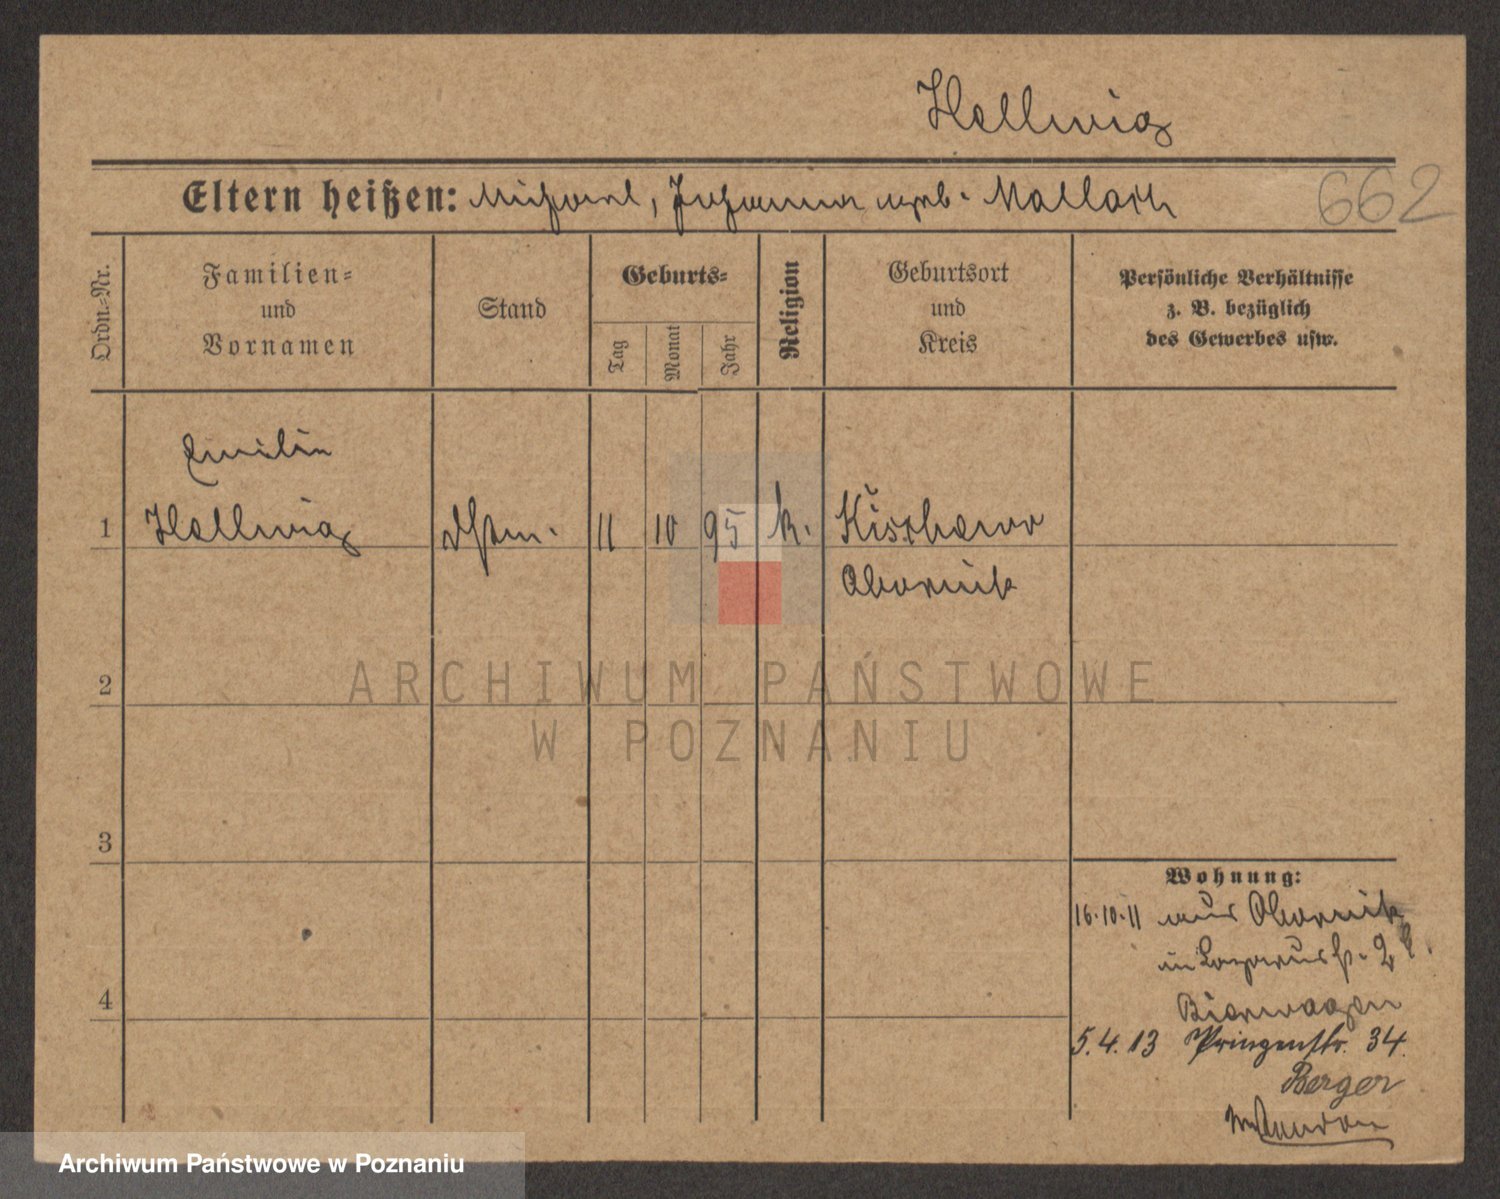 Hellwig
Eltern heißen: Michael, Johanna geb. Mallach
662
Ordn.-Nr.
Familien-
und
Vornamen
Stand
Geburts-
Tag
Monat
Jahr
Religion
Geburtsort
und
Kreis
Persönliche Verhältnisse
z. B. bezüglich
des Gewerbes usw.
Emilie
1 Hellwig 11 10 95 k.
Obornik
2
ARCHIWUM PAŃSTWOWE
W POZNANIU
3
4
Wohnung:
16.10.11 aus Obornik
in Lazarusstr. 2
5.4.13 Prinzenstr. 34.
Berger
Archiwum Państwowe w Poznaniu